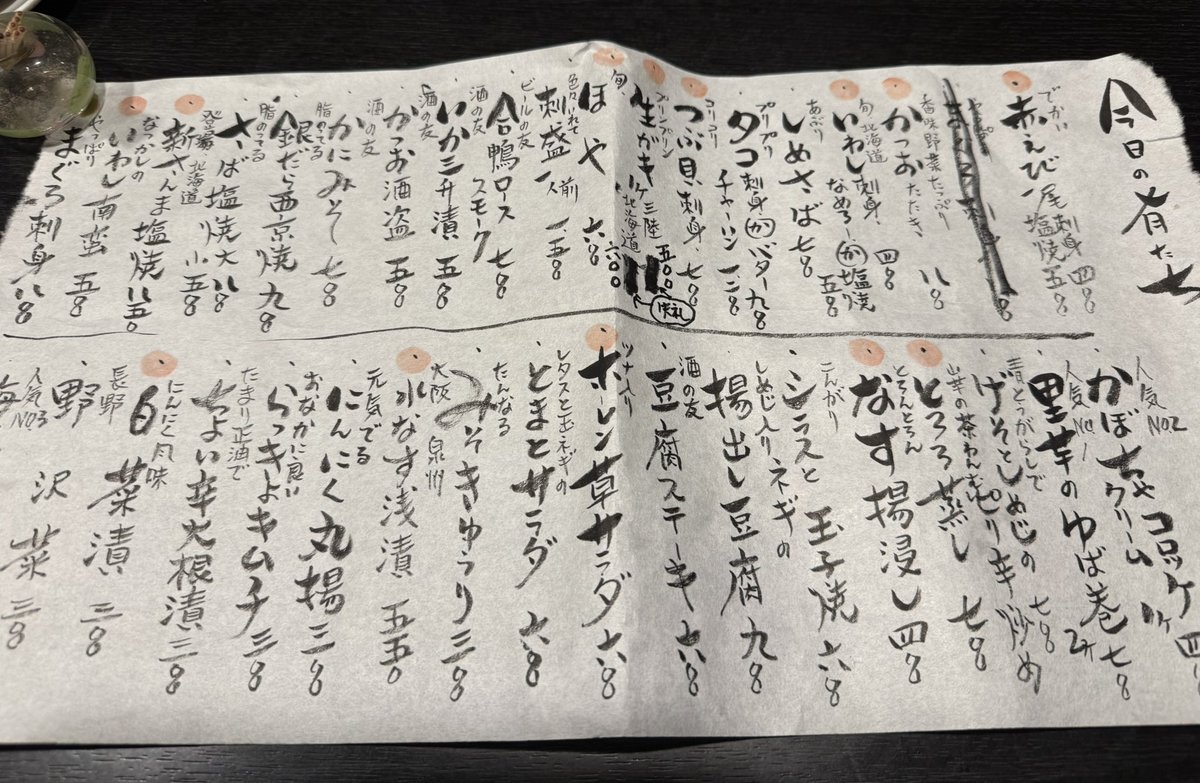 今日の有た七
でかい
赤えび 一尾 刺身 四8
塩焼 五8
香味野菜たっぷり
かつおたたき 八8
旬 北海道
いわし 刺身 四8
なめろうor塩焼 五8
あぶり
しめさば 七8
プリプリ
タコ 刺身orバター 九8
チャーハン 一二8
コリコリ
つぶ貝刺身 七8
プリンプリン
生がき 1ケ 三陸 五〇〇
北海道 六〇〇
失礼
旬
ほや 六8
色々入れて
刺盛 一人前 一五8
ビールの友
合鴨ロース スモーク 七8
酒の友
いか三升漬 五8
酒の友
かつお酒盗 五8
酒の友
かにみそ 七8
脂のってる
銀だら西京焼 九8
脂のってる
さば塩焼 大 八8
小 五8
登場 北海道
新さんま塩焼 八五8
なつかしの
いわし南蛮 五8
やっぱり
まぐろ刺身 八8
人気No2
かぼちゃクリームコロッケ 1ケ 四
人気No1
里芋のゆば巻 2ケ 七8
青とうがらしで
げそとしめじのピリ辛炒め 七8
山芋の茶わんむし
とろろ蒸し 七8
とろんとろん
なす揚浸し 四8
こんがり
シラスと玉子焼 六8
しめじ入りネギの
揚出し豆腐 九8
酒の友
豆腐ステーキ 六8
ツナ入り
ホーレン草サラダ 六8
レタスと玉ネギの
とまとサラダ 六8
たんなる
みそきゅうり 三8
大阪 泉州
水なす浅漬 五五8
元気でる
にんにく丸揚 三8
おなかに良い
らっきょキムチ 三8
たまり正酒で
ちょい辛大根漬 三8
にんにく風味
白菜漬 三8
長野
野沢菜 三8
人気No3